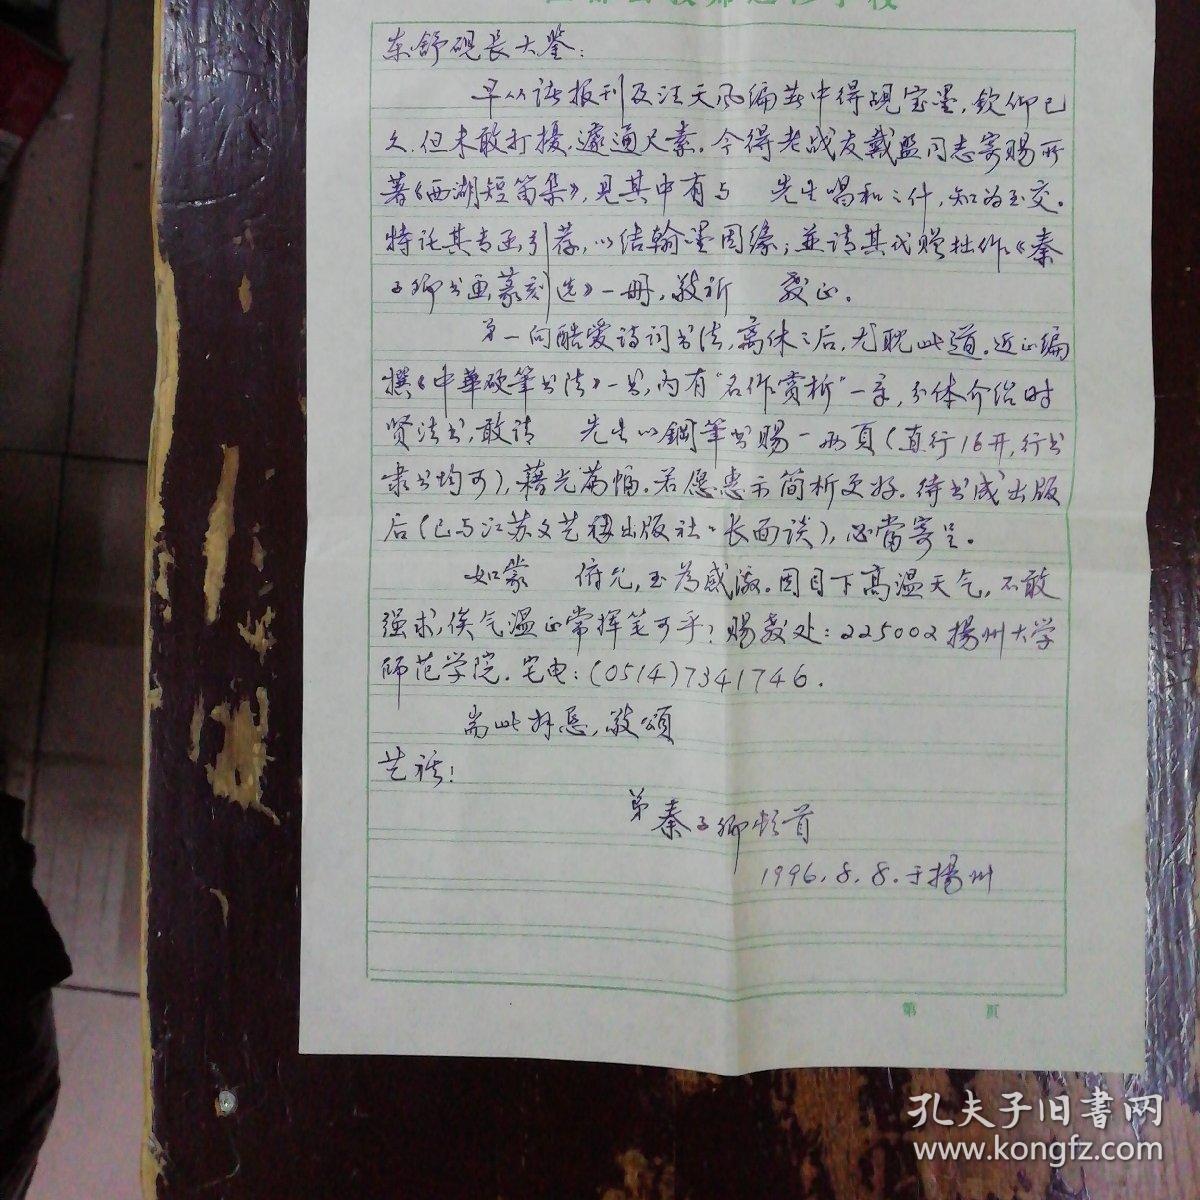 东舒砚长大鉴：
早从诸报刊及汪天风编著中得觌宝墨，钦仰已
久，但未敢打擾，遽通尺素。今得老战友戴盟同志寄赐所
著《西湖短笛集》，见其中有与 先生唱和之什，知为至交。
特託其专函引荐，以结翰墨因缘；並请其代赠拙作《秦
子卿书画篆刻选》一册，敬祈 教正。
弟一向酷爱诗词书法，离休之后，尤耽此道。近正编
撰《中華硬筆书法》一书，内有“名作赏析”一章，分体介绍时
贤法书，敢请 先生以鋼筆书赐一两頁（直行16开，行书
隶书均可），藉光篇幅。若愿惠示简析更好。待书成出版
后（已与江苏文艺出版社社长面谈），必當寄呈。
如蒙 俯允，至为感激。因目下高温天气，不敢
强求，俟气温正常挥笔可乎？赐教处：225002揚州大学
师范学院。宅电：(0514)7341746.
耑此拜恳，敬頌
艺祺！
弟秦子卿顿首
1996.8.8.于揚州
第 頁
孔夫子旧書网
www.kongfz.com